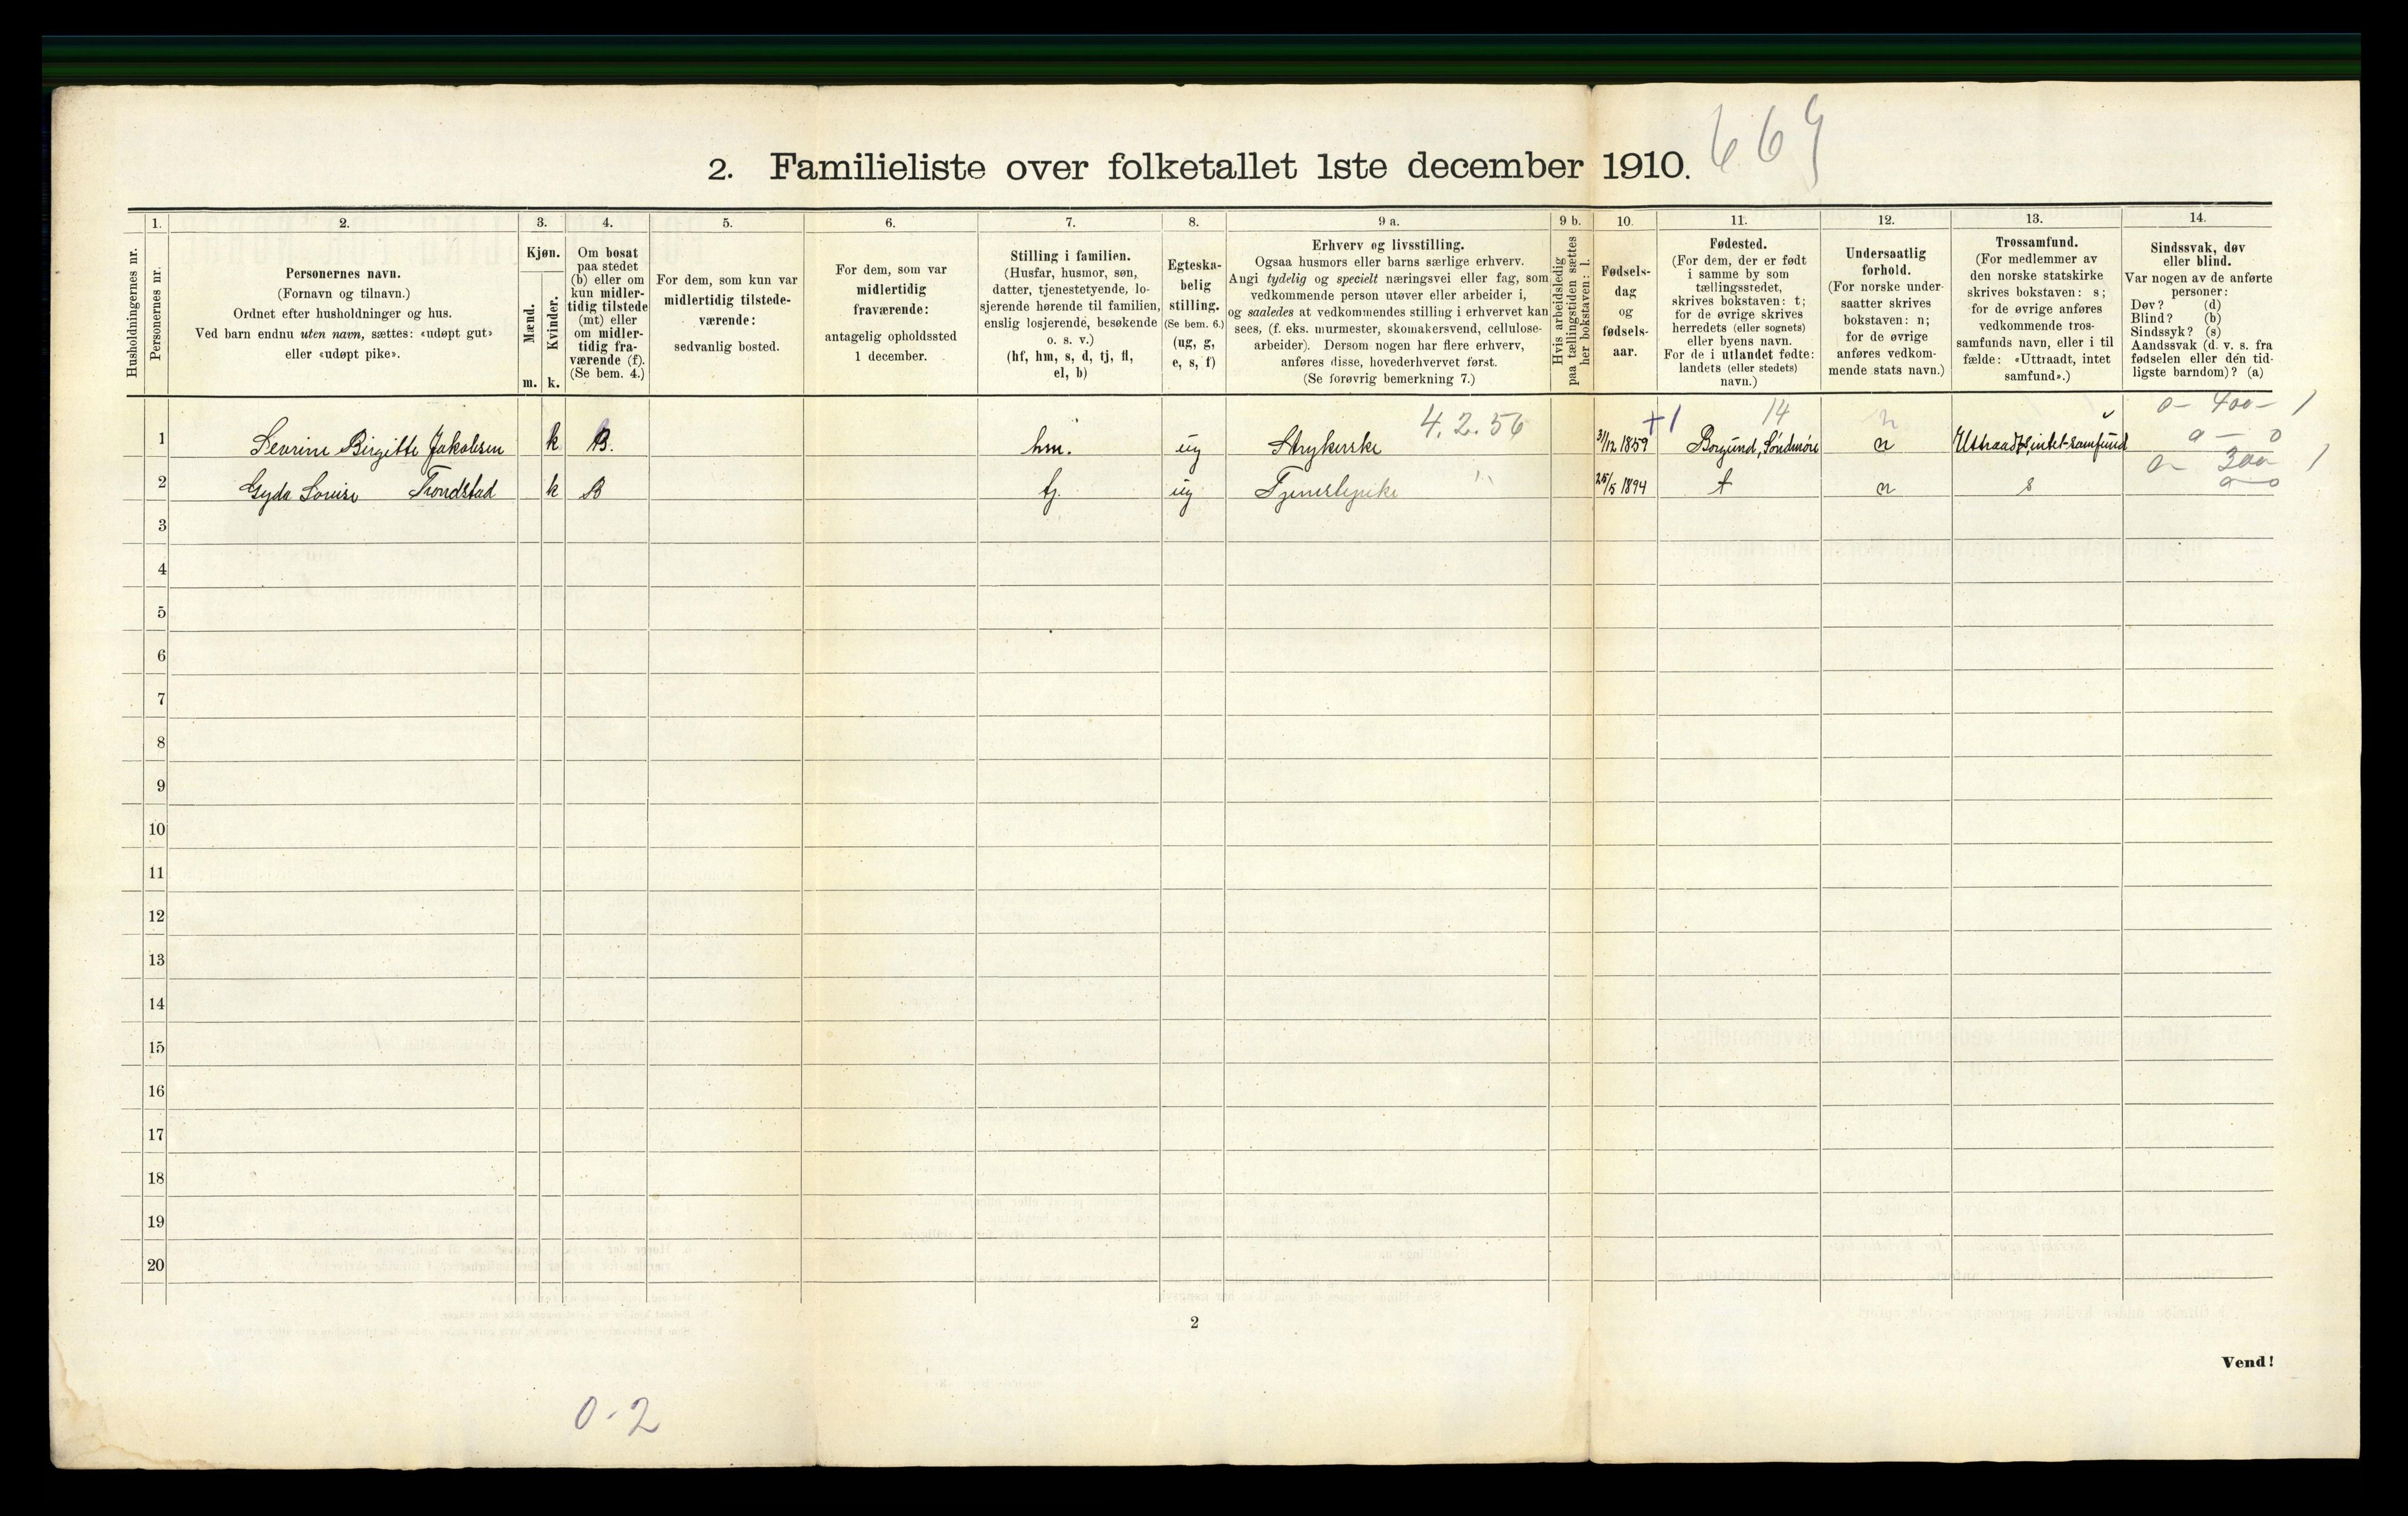 2. Familieliste over folketallet 1ste december 1910.
Husholdningernes nr.
1.
Personernes nr.
2.
Personernes navn.
(Fornavn og tilnavn.)
Ordnet efter husholdninger og hus.
Ved barn endnu uten navn, sættes: «udøpt gut»
eller «udøpt pike».
3.
Kjøn.
Mænd.
Kvinder.
m. k.
4.
Om bosat
paa stedet
(b) eller om
kun midler-
tidig tilstede
(mt) eller
om midler-
tidig fra-
værende (f).
(Se bem. 4.)
5.
For dem, som kun var
midlertidig tilstede-
værende:
sedvanlig bosted.
6.
For dem, som var
midlertidig
fraværende:
antagelig opholdssted
1 december.
7.
Stilling i familien.
(Husfar, husmor, søn,
datter, tjenestetyende, lo-
sjerende hørende til familien,
enslig losjerende, besøkende
o. s. v.)
(hf, hm, s, d, tj, fl,
el, b)
8.
Egteska-
belig
stilling.
(Se bem. 6.)
(ug, g,
e, s, f)
9 a.
Erhverv og livsstilling.
Ogsaa husmors eller barns særlige erhverv.
Angi tydelig og specielt næringsvei eller fag, som
vedkommende person utøver eller arbeider i,
og saaledes at vedkommendes stilling i erhvervet kan
sees, (f. eks. murmester, skomakersvend, cellulose-
arbeider). Dersom nogen har flere erhverv,
anføres disse, hovederhvervet først.
(Se forøvrig bemerkning 7.)
9 b.
Hvis arbeidsledig
paa tællingstiden sættes
her bokstaven: l.
10.
Fødsels-
dag
og
fødsels-
aar.
11.
Fødested.
(For dem, der er født
i samme by som
tællingsstedet,
skrives bokstaven: t;
for de øvrige skrives
herredets (eller sognets)
eller byens navn.
For de i utlandet fødte:
landets (eller stedets)
navn.)
12.
Undersaatlig
forhold.
(For norske under-
saatter skrives
bokstaven: n;
for de øvrige
anføres vedkom-
mende stats navn.)
13.
Trossamfund.
(For medlemmer av
den norske statskirke
skrives bokstaven: s;
for de øvrige anføres
vedkommende tros-
samfunds navn, eller i til
fælde: «Uttraadt, intet
samfund».)
14.
Sindssvak, døv
eller blind.
Var nogen av de anførte
personer:
Døv? (d)
Blind? (b)
Sindssyk? (s)
Aandssvak (d. v. s. fra
fødselen eller den tid-
ligste barndom)? (a)
4.2.56 +1 14 n 0 - 400 - 1
1 Sevrine Birgitte Jakobsen k B. hm. ug Strykerske 31/12 1859 Borgund, Søndmøre n Utraadt, intet samfund 0 - 0
0 - 300 1
2 Gyda Louise Trondstad k B tj. ug Tjenestepike 25/5 1894 t n s 0 - 0
3
4
5
6
7
8
9
10
11
12
13
14
15
16
17
18
19
20
2
Vend!
0-2